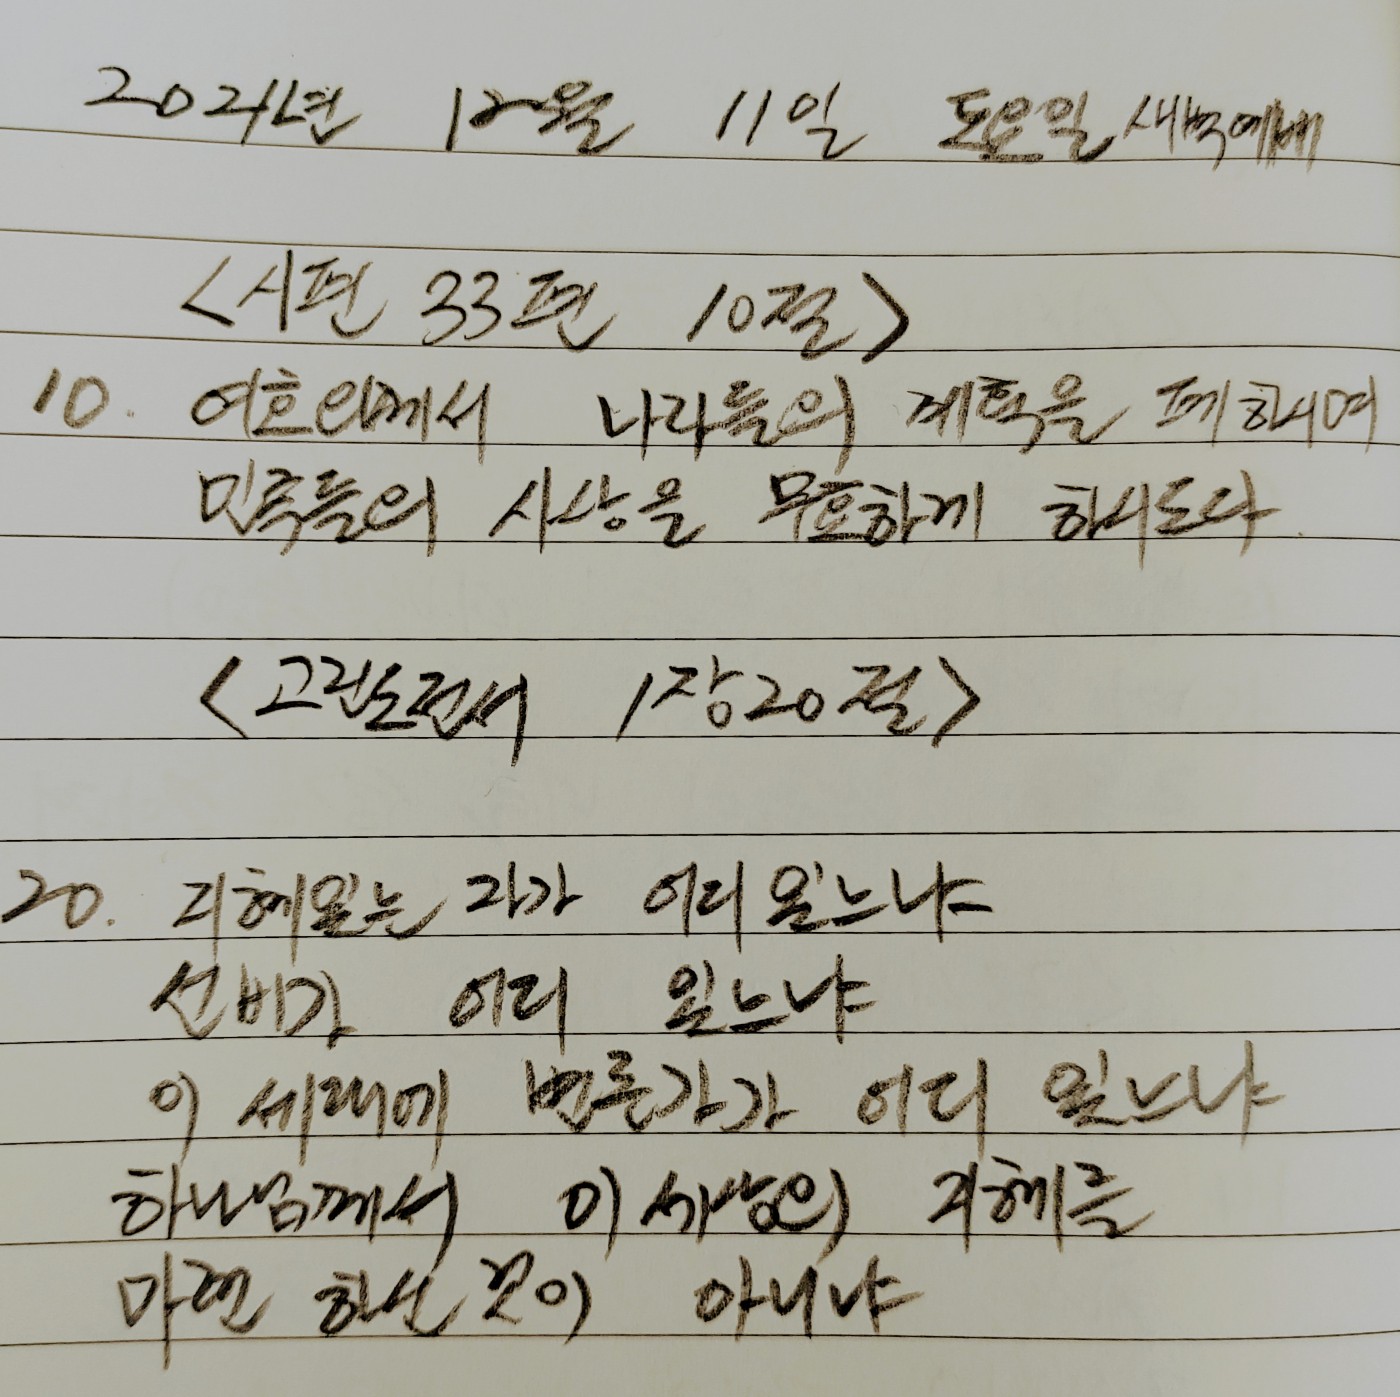 2021년 12월 11일 토요일 새벽예배
<시편 33편 10절>
10. 여호와께서 나라들의 계획을 폐하시며
민족들의 사상을 무효하게 하시도다
<고린도전서 1장20절>
20. 지혜있는 자가 어디있느냐
선비가 어디 있느냐
이 세대에 변론가가 어디 있느냐
하나님께서 이 세상의 지혜를
하신 것이 아니냐